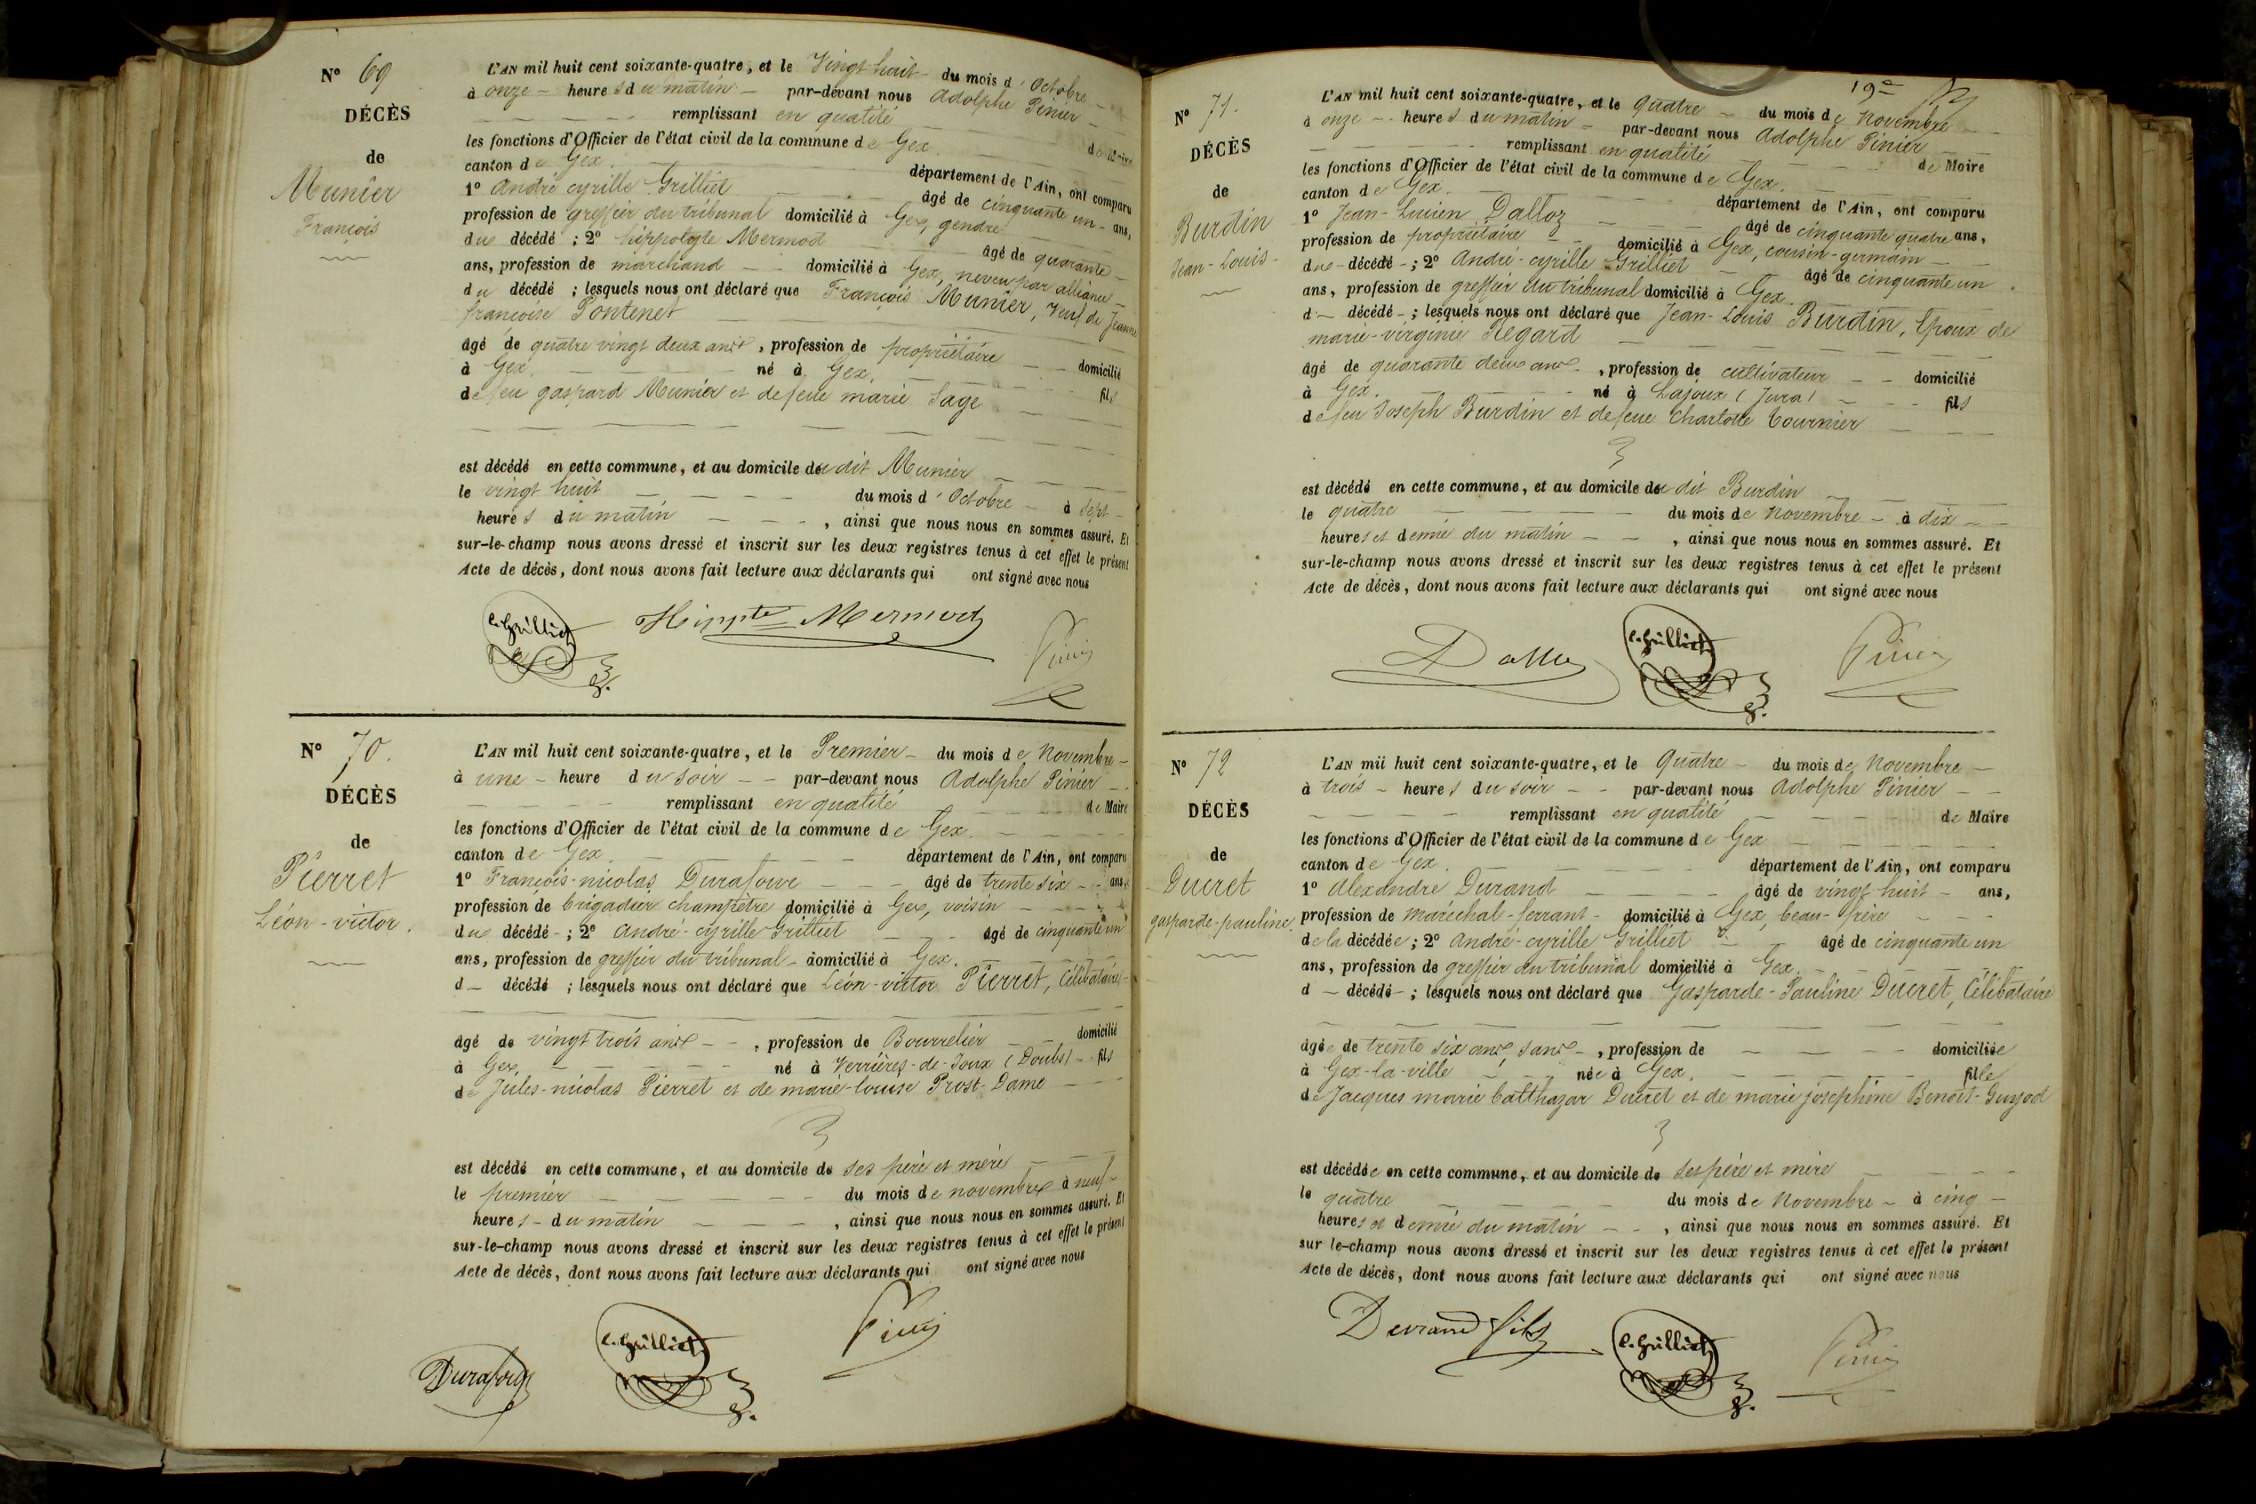 Nº 69
DÉCÈS
de
Munier
François
L'AN mil huit cent soixante-quatre, et le Vingt huit du mois d'Octobre
à onze heures du matin par-devant nous Adolphe Pinier
remplissant en qualité de Maire
les fonctions d'Officier de l'état civil de la commune de Gex
canton de Gex. département de l'Ain, ont comparu
1º André cyrille Grilliet âgé de cinquante un ans,
profession de greffier du tribunal domicilié à Gex, gendre
du décédé ; 2º hippolyte Mermod âgé de quarante
ans, profession de marchand domicilié à Gex, neveu par alliance
du décédé ; lesquels nous ont déclaré que François Munier, Veuf de Jeanne
françoise Pontenet
âgé de quatre vingt deux ans, profession de propriétaire domicilié
à Gex, né à Gex, fils
de feu gaspard Munier et de feue marie Sage
est décédé en cette commune, et au domicile du dit Munier
le vingt huit du mois d'Octobre à sept
heures du matin, ainsi que nous nous en sommes assuré. Et
sur-le-champ nous avons dressé et inscrit sur les deux registres tenus à cet effet le présent
Acte de décès, dont nous avons fait lecture aux déclarants qui ont signé avec nous
c. Grilliet Hippte Mermod Pinier
Nº 70.
DÉCÈS
de
Pierret
Léon-victor.
L'AN mil huit cent soixante-quatre, et le Premier du mois de Novembre
à une heure du soir par-devant nous Adolphe Pinier
remplissant en qualité de Maire
les fonctions d'Officier de l'état civil de la commune de Gex
canton de Gex département de l'Ain, ont comparu
1º François-nicolas Durafour âgé de trente six ans,
profession de brigadier champêtre domicilié à Gex, voisin
du décédé ; 2º André-cyrille Grilliet âgé de cinquante un
ans, profession de greffier du tribunal domicilié à Gex.
d décédé ; lesquels nous ont déclaré que Léon-victor Pierret, Célibataire
âgé de vingt trois ans, profession de Bourrelier domicilié
à Gex, né à Verrières-de-Joux (Doubs) fils
de Jules-nicolas Pierret et de marie-louise Prost-Dame
est décédé en cette commune, et au domicile de ses père et mère
le premier du mois de novembre à neuf
heures du matin, ainsi que nous nous en sommes assuré. Et
sur-le-champ nous avons dressé et inscrit sur les deux registres tenus à cet effet le présent
Acte de décès, dont nous avons fait lecture aux déclarants qui ont signé avec nous
Durafour c. Grilliet Pinier
19e
Nº 71.
DÉCÈS
de
Burdin
Jean-Louis
L'AN mil huit cent soixante-quatre, et le quatre du mois de Novembre
à onze heures du matin par-devant nous Adolphe Pinier
remplissant en qualité de Maire
les fonctions d'Officier de l'état civil de la commune de Gex.
canton de Gex. département de l'Ain, ont comparu
1º Jean-Lucien Dalloz âgé de cinquante quatre ans,
profession de propriétaire domicilié à Gex, cousin-germain
du décédé ; 2º André-cyrille Grilliet âgé de cinquante un
ans, profession de greffier du tribunal domicilié à Gex.
d décédé ; lesquels nous ont déclaré que Jean-Louis Burdin, Epoux de
marie-virginie Regard
âgé de quarante deux ans, profession de cultivateur domicilié
à Gex. né à Lajoux (Jura) fils
de feu Joseph Burdin et de feue Charlotte Tournier
est décédé en cette commune, et au domicile du dit Burdin
le quatre du mois de Novembre à dix
heures et demie du matin, ainsi que nous nous en sommes assuré. Et
sur-le-champ nous avons dressé et inscrit sur les deux registres tenus à cet effet le présent
Acte de décès, dont nous avons fait lecture aux déclarants qui ont signé avec nous
Dalloz c. Grilliet Pinier
Nº 72
DÉCÈS
de
Ducret
gasparde-pauline.
L'AN mil huit cent soixante-quatre, et le Quatre du mois de Novembre
à trois heures du soir par-devant nous Adolphe Pinier
remplissant en qualité de Maire
les fonctions d'Officier de l'état civil de la commune de Gex
canton de Gex. département de l'Ain, ont comparu
1º Alexandre Durand âgé de vingt huit ans,
profession de maréchal-ferrant domicilié à Gex, beau-frère
de la décédée ; 2º André-cyrille Grilliet âgé de cinquante un
ans, profession de greffier du tribunal domicilié à Gex
d décédé ; lesquels nous ont déclaré que Gasparde-Pauline Ducret, Célibataire
âgée de trente six ans, sans, profession de domiciliée
à Gex-la-ville née à Gex. fille
de Jacques marie balthazar Ducret et de marie josephine Benoit-Guyod
est décédée en cette commune, et au domicile de ses père et mère
le quatre du mois de Novembre à cinq
heures et demie du matin, ainsi que nous nous en sommes assuré. Et
sur le-champ nous avons dressé et inscrit sur les deux registres tenus à cet effet le présent
Acte de décès, dont nous avons fait lecture aux déclarants qui ont signé avec nous
Durand fils c. Grilliet Pinier